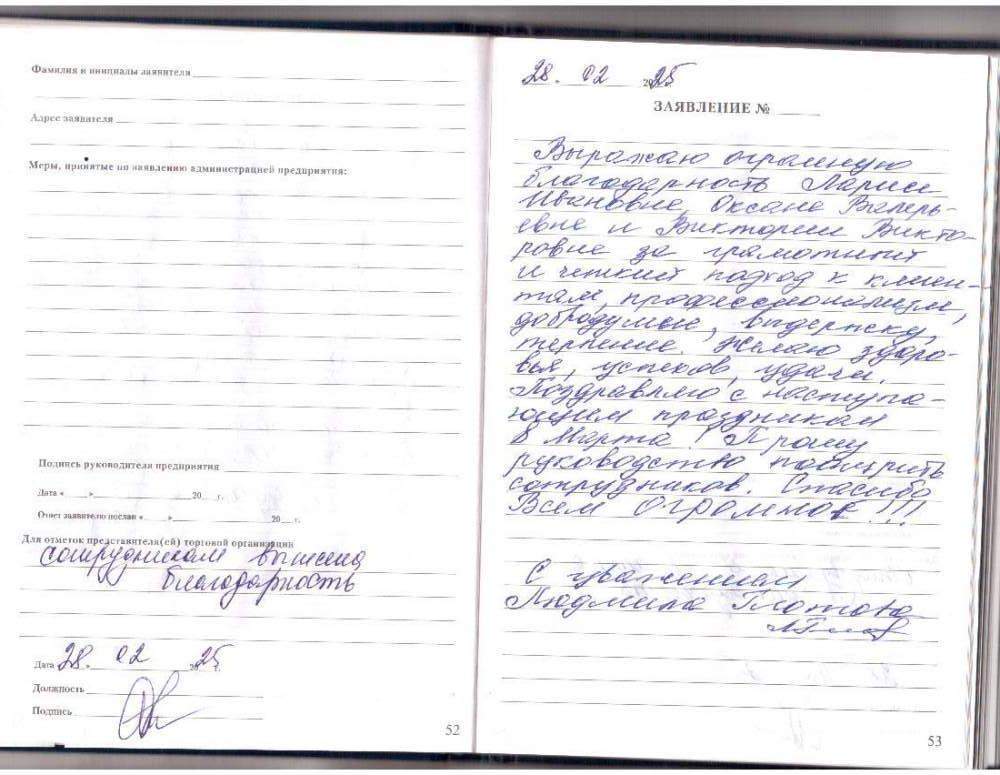 Фамилия и инициалы заявителя
Адрес заявителя
Меры, принятые по заявлению администрацией предприятия:
Подпись руководителя предприятия
Дата «    »    20    г.
Ответ заявителю послан «    »    20    г.
Для отметок представителя(ей) торговой организации
сотрудникам вынесена
благодарность
Дата 28 » 02 2025 г.
Должность
Подпись
52
28. 02 2025 г.
ЗАЯВЛЕНИЕ №
Выражаю огромную
благодарность Ларисе
Ивановне, Оксане Валерь-
евне и Виктории Викто-
ровне за грамотный
и чёткий подход к клиен-
там, профессионализм,
добродушие, выдержку,
терпение. Желаю здоро-
вья, успехов, удачи.
Поздравляю с наступа-
ющим праздникам
8 Марта! Прошу
руководство поощрить
сотрудников. Спасибо
Всем Огромное!!!
С уважением
Людмила Глотова
53